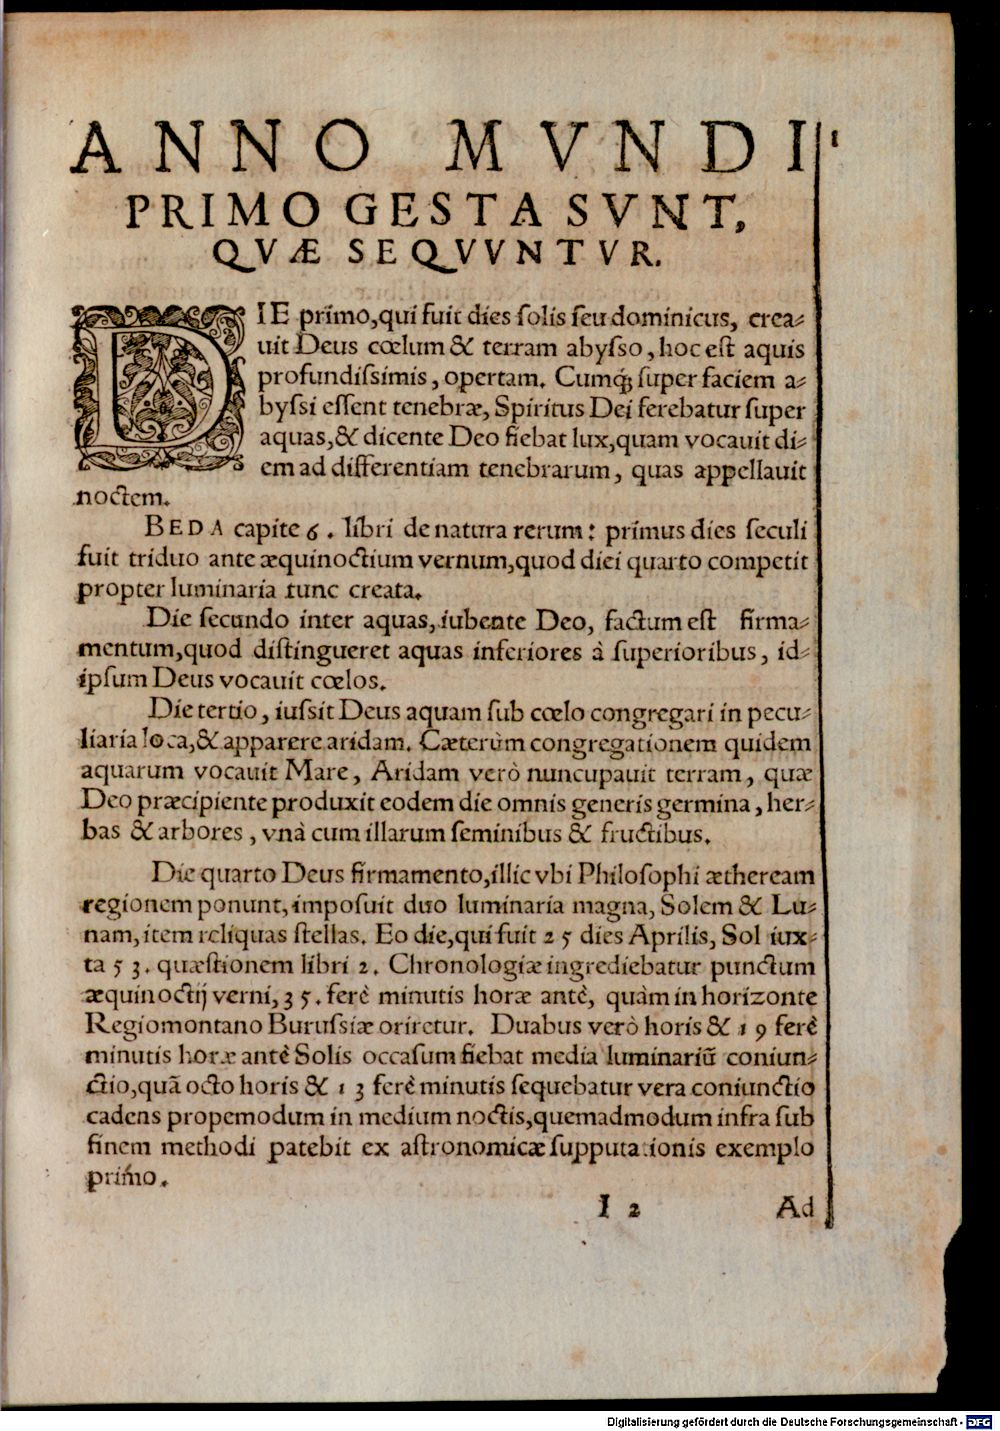 ANNO MVNDI 1
PRIMO GESTA SVNT,
QVÆ SEQVVNTVR.
DIE primo, qui fuit dies solis seu dominicus, crea-
uit Deus cœlum & terram abysso, hoc est aquis
profundissimis, opertam. Cumq́ꝫ super faciem a-
byssi essent tenebræ, Spiritus Dei ferebatur super
aquas, & dicente Deo fiebat lux, quam vocauit di-
em ad differentiam tenebrarum, quas appellauit
noctem.
BEDA capite 6. libri de natura rerum: primus dies seculi
fuit triduo ante æquinoctium vernum, quod diei quarto competit
propter luminaria tunc creata.
Die secundo inter aquas, iubente Deo, factum est firma-
mentum, quod distingueret aquas inferiores à superioribus, id-
ipsum Deus vocauit cœlos.
Die tertio, iussit Deus aquam sub cœlo congregari in pecu-
liaria loca, & apparere aridam. Cæterùm congregationem quidem
aquarum vocauit Mare, Aridam verò nuncupauit terram, quæ
Deo præcipiente produxit eodem die omnis generis germina, her-
bas & arbores, vnà cum illarum seminibus & fructibus.
Die quarto Deus firmamento, illic vbi Philosophi ætheream
regionem ponunt, imposuit duo luminaria magna, Solem & Lu-
nam, item reliquas stellas. Eo die, qui fuit 25 dies Aprilis, Sol iux-
ta 53. quæstionem libri 2. Chronologiæ ingrediebatur punctum
æquinoctij verni, 35. ferè minutis horæ antè, quàm in horizonte
Regiomontano Burussiæ oriretur. Duabus verò horis & 19 ferè
minutis horæ antè Solis occasum fiebat media luminariũ coniun-
ctio, quã octo horis & 13 ferè minutis sequebatur vera coniunctio
cadens propemodum in medium noctis, quemadmodum infra sub
finem methodi patebit ex astronomicæ supputationis exemplo
primo.
I 2 Ad
Digitalisierung gefördert durch die Deutsche Forschungsgemeinschaft - DFG